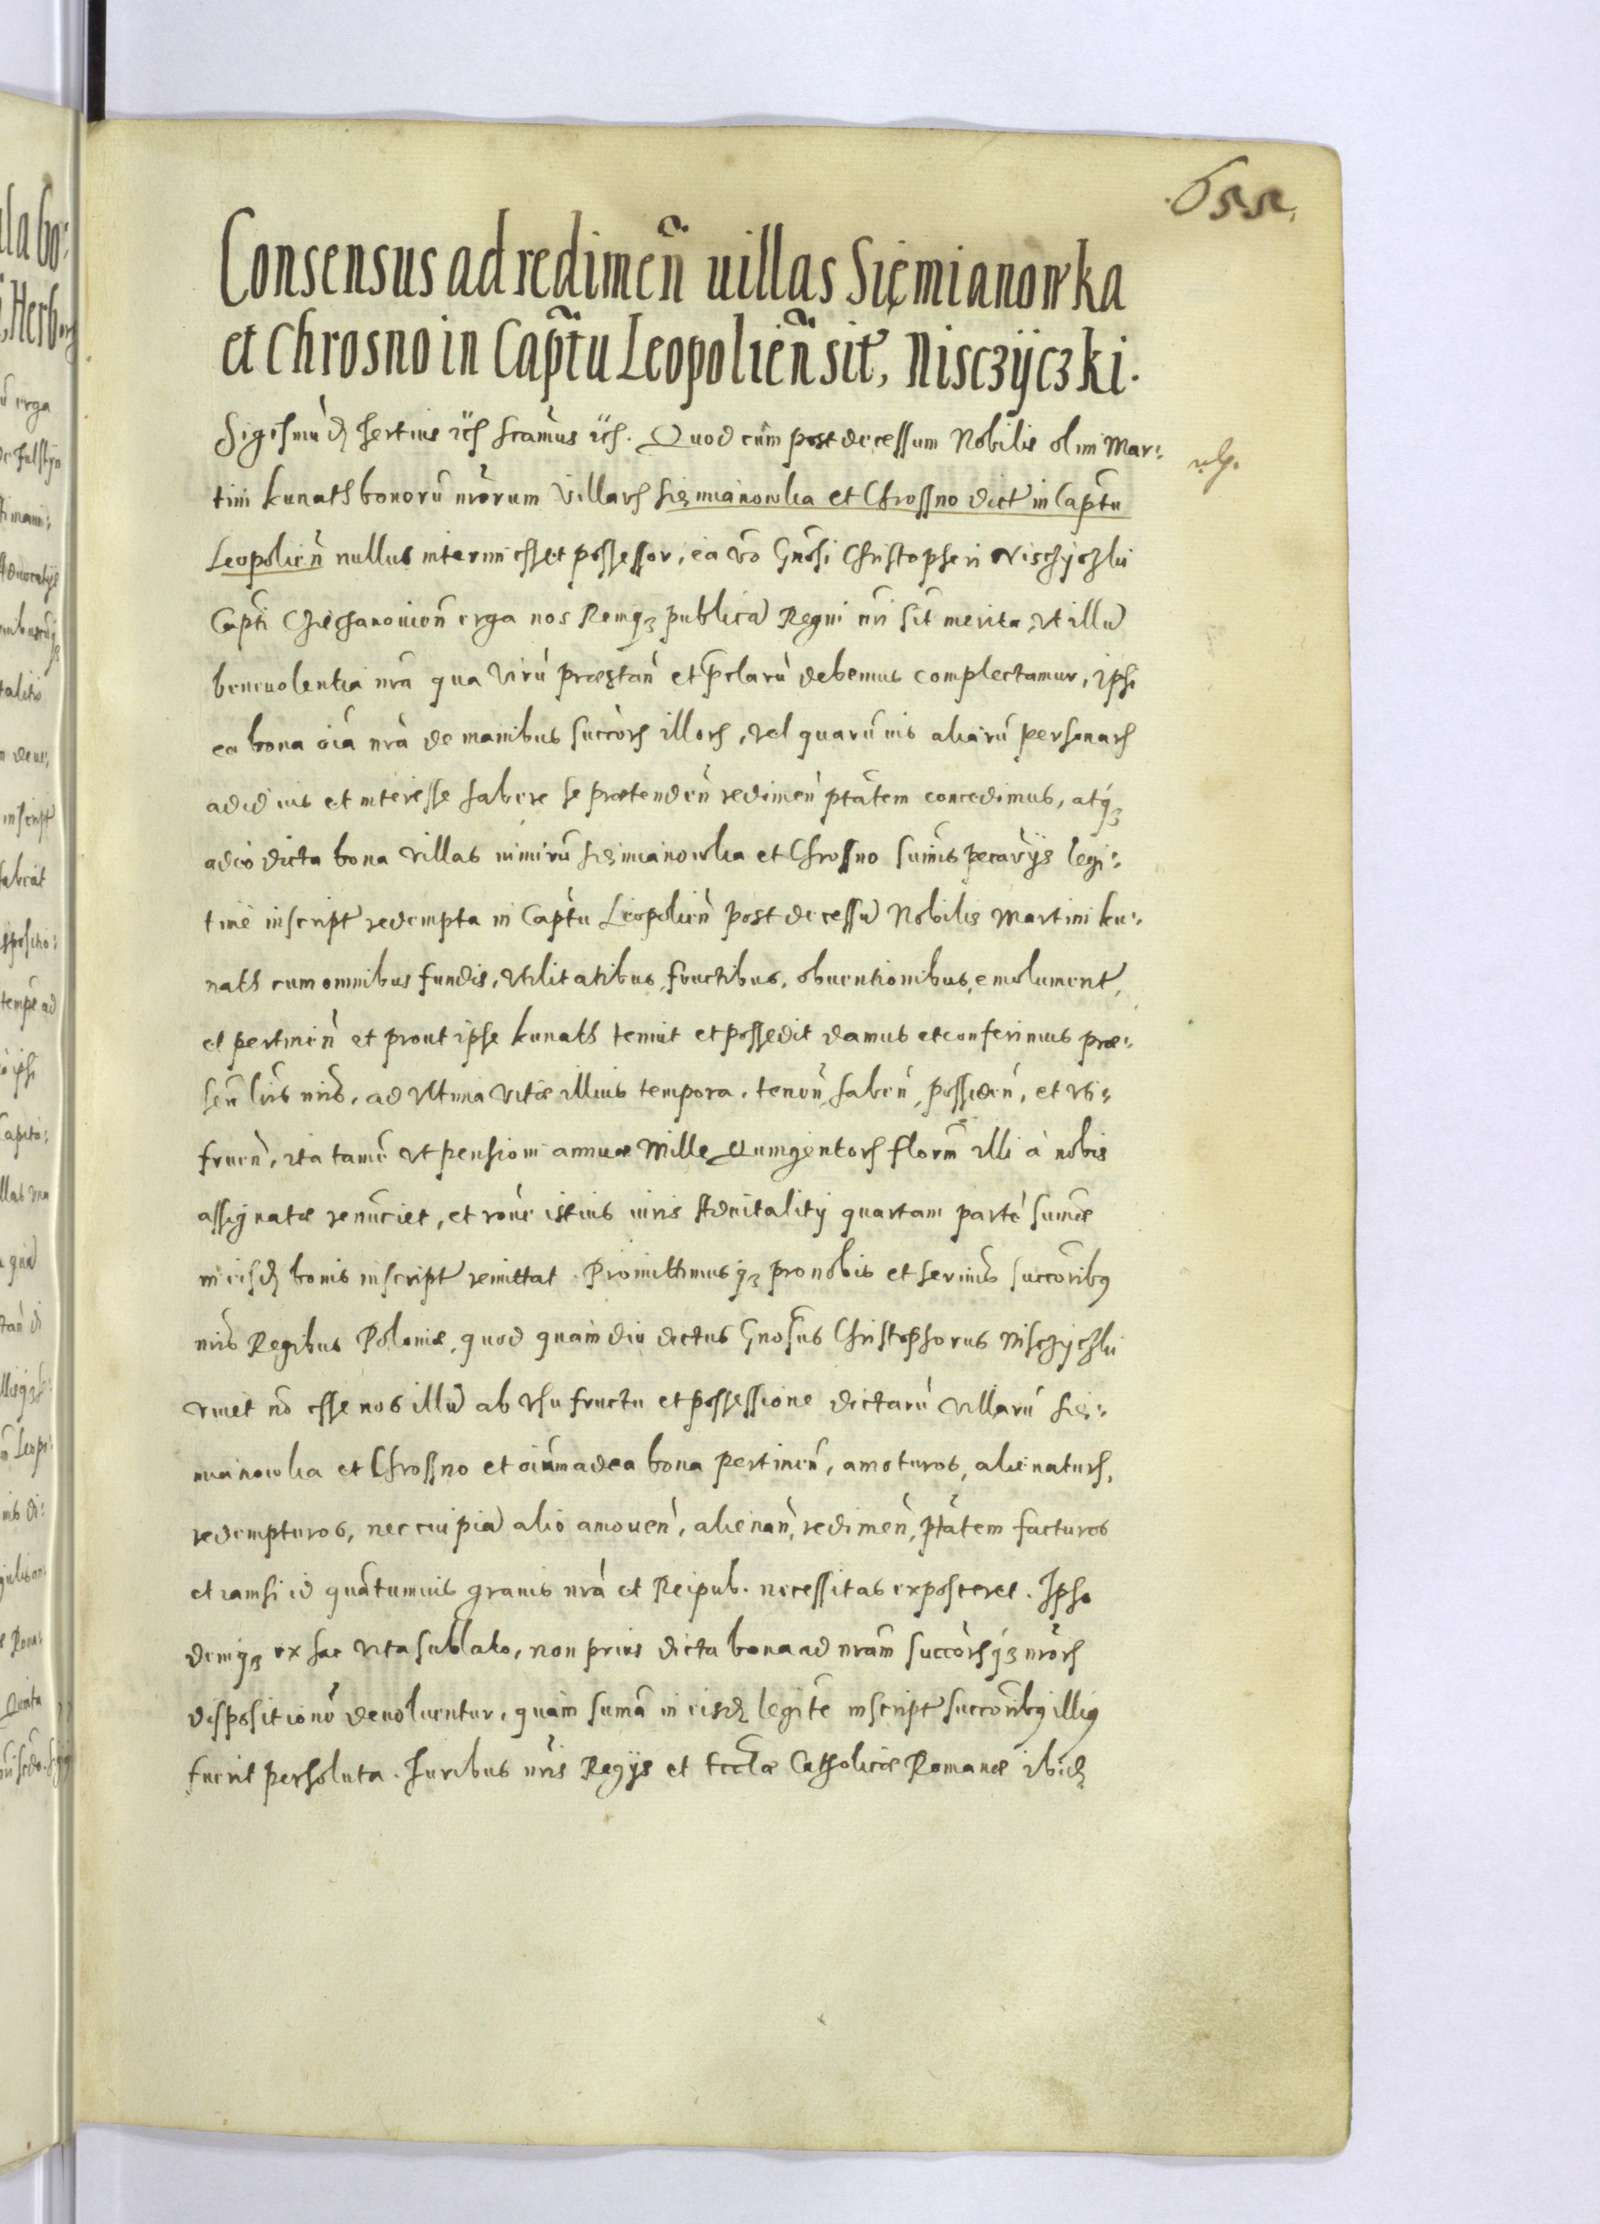 655.
Consensus ad redimeñ uillas Sięmianowka
et Chrosno in Cap̃tu Leopolieñ sit, Nisczÿczki.
Sigismũd tertius etc. scamus etc. Quod cum post decessum Nobilis olim Mar:
tini Kunath bonorũ nrorum Villarũ Sięmianowka et Chrossno dict in Capt̃u
Leopolieñ nullus interim esset possessor, ea vo Gnosi Christopheri Nisczyczki
Capti Cziechanouien erga nos Remq; publicã Regni nri sit merita, vt illũ
beneuolentia nra qua virũ præstañ et p̃clarũ debemus complectamur, ipsi
ea bona oia nra de manibus succorũ illorũ, vel quarũuis aliarũ personarũ
ad id ius et interesse habere se prætendeñ redimeñ ptatem concedimus, atq;
adeo dicta bona villas nimirũ Sięmianowka et Chrossno summis pecarijs legi:
time inscript redempta in Captu Leopolieñ post decessũ Nobilis Martini Ku:
nath cum omnibus fundis, vtilitatibus, fructibus, obuentionibus, emolument,
et pertineñ et prout ipse Kunath tenuit et possedit damus et conferimus præ:
señ lris nris, ad vltima vitæ illius tempora, teneñ, habeñ, possideñ, et vti:
frueñ, ita tamẽ vt pensioni annuæ Mille Quingentorũ florm illi à nobis
assignatæ renũciet, et rone istius iuris Aduitalitij quartam partẽ summæ
in eisd bonis inscript remittat. Promittimusq; pro nobis et sermis succoribus
nris Regibus Poloniæ, quod quamdiu dictus Gnosus Christophorus Nisczyczki
viuet nõ esse nos illũ ab vsufructu et possessione dictarũ Villarũ Się:
mianowka et Chrossno et oium ad ea bona pertineñ, amoturos, alienaturos,
redempturos, nec cuipiã alio amoueñ, alienañ, redimeñ, ptatem facturos
etiamsi id quantumuis grauis nra et Reipub. necessitas exposceret. Ipso
demq; ex hac vita sublato, non prius dicta bona ad nram succorũq; nrorũ
dispositionẽ deuoluentur, quàm summa in eisd legitẽ inscript succoribus illius
fuerit persoluta. Iuribus nris Regijs et Ecclæ Catholicæ Romanæ ibid